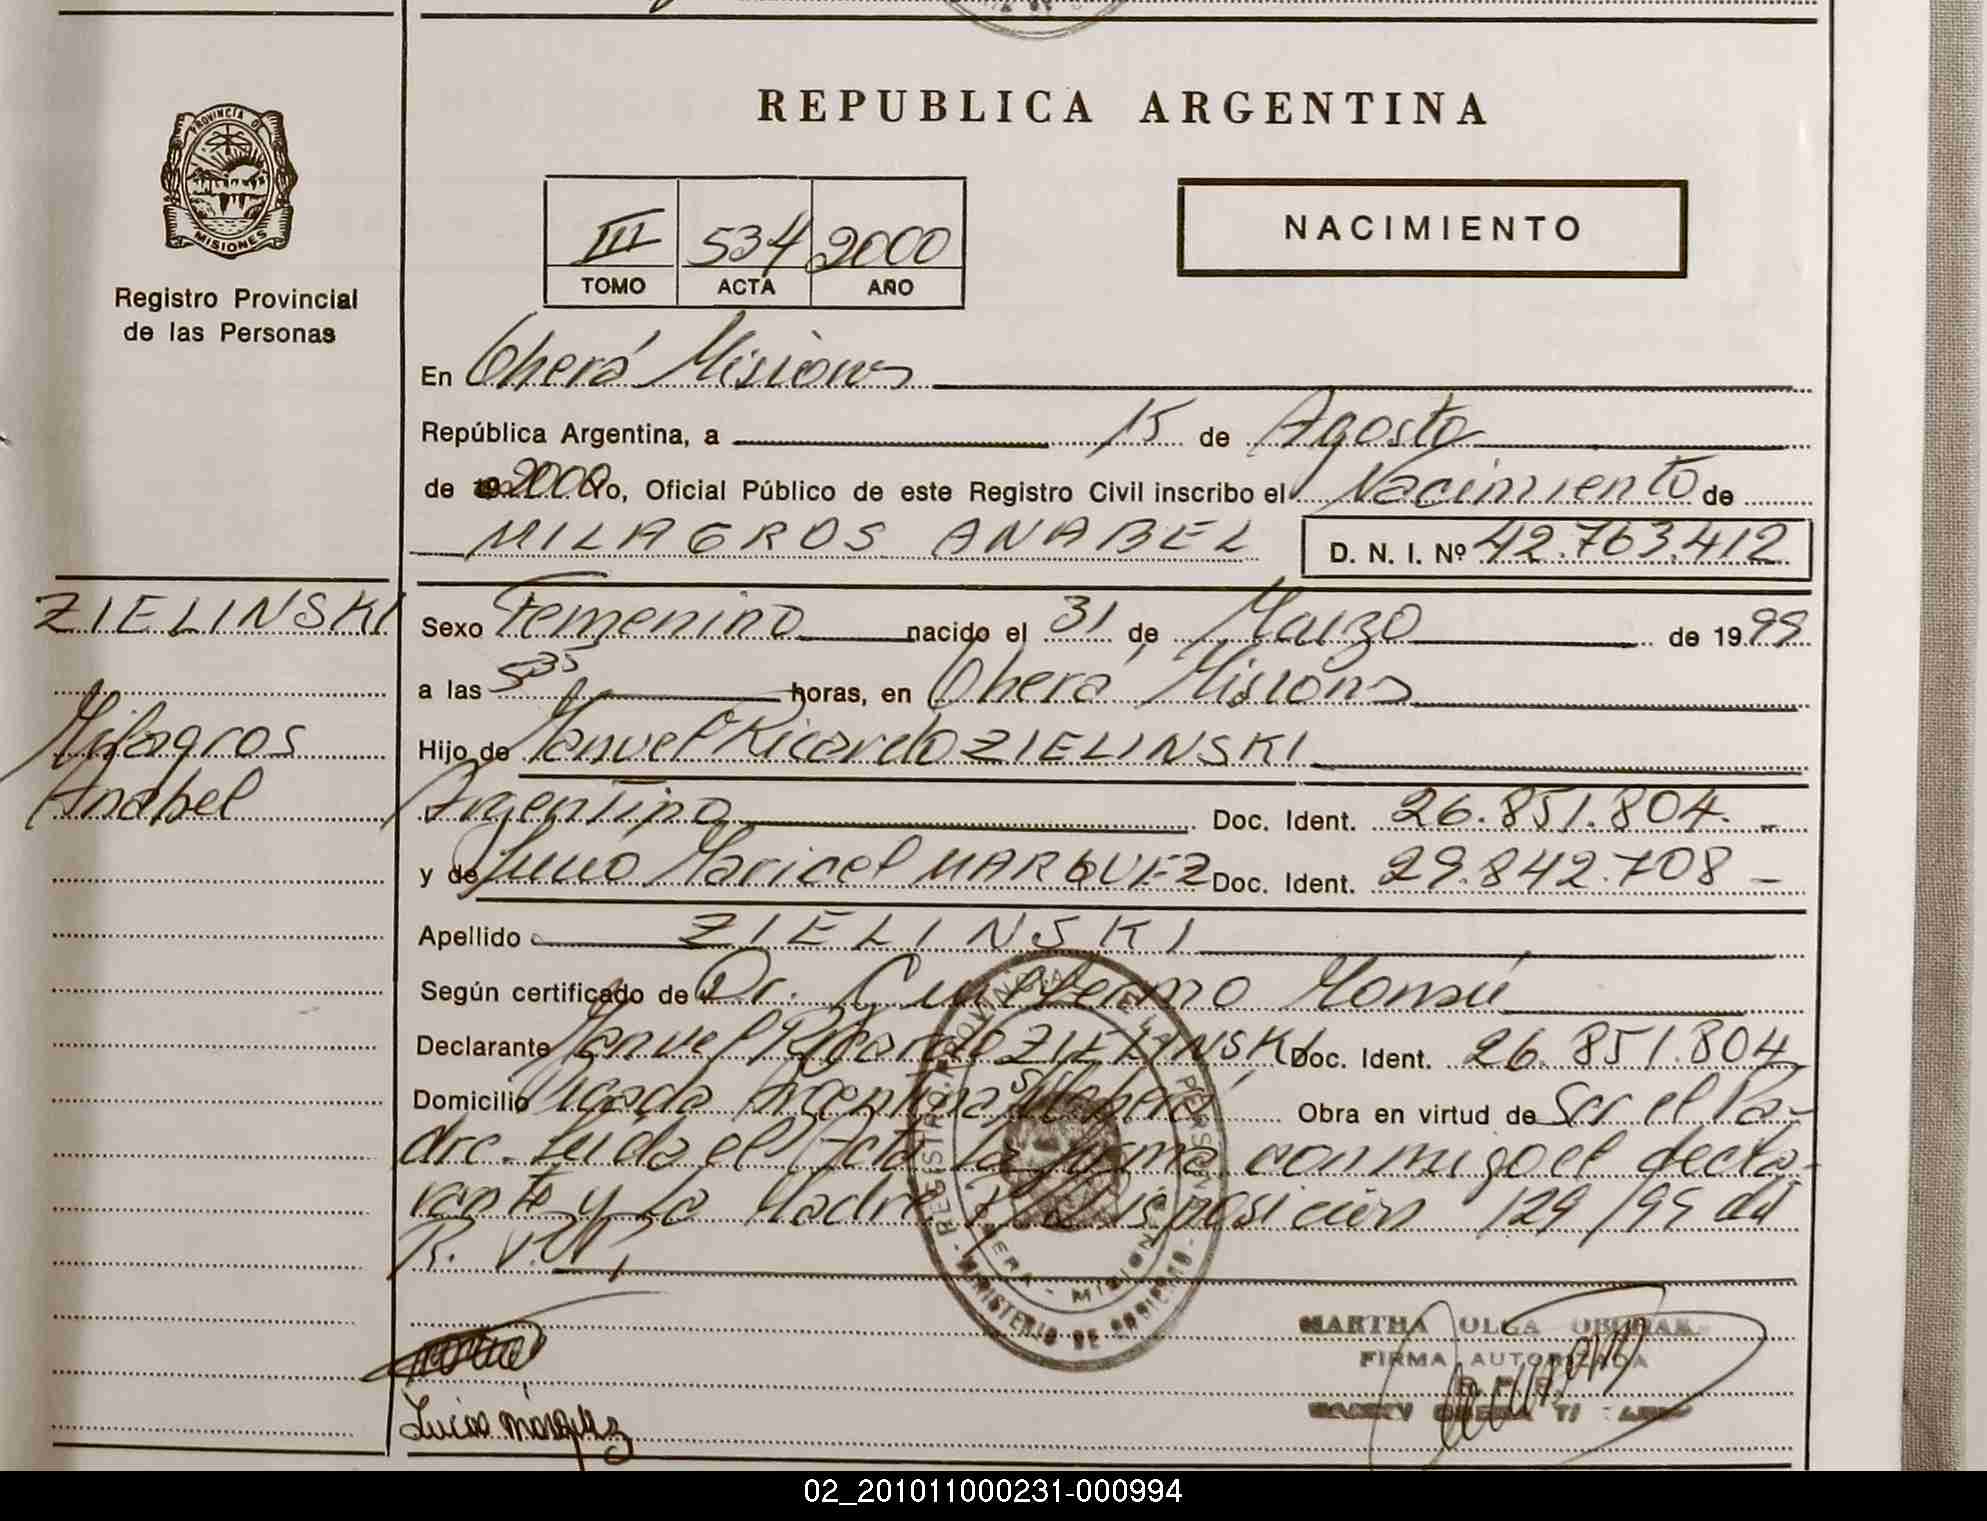 REPUBLICA ARGENTINA
PROVINCIA DE
MISIONES
Registro Provincial
de las Personas
III 534 2000
TOMO ACTA AÑO
NACIMIENTO
En Oberá Misiones
República Argentina, a 15 de Agosto
de 2000 Yo, Oficial Público de este Registro Civil inscribo el Nacimiento de
MILAGROS ANABEL D. N. I. Nº 42.763.412
ZIELINSKI
Milagros
Anabel
Sexo Femenino nacido el 31 de Marzo de 1999
a las 5 35 horas, en Oberá Misiones
Hijo de Manuel Ricardo ZIELINSKI
Argentino Doc. Ident. 26.851.804.-
y de Maricel MARQUEZ Doc. Ident. 29.842.708-
Apellido ZIELINSKI
Según certificado de Dr. Guillermo
Declarante Manuel Ricardo ZIELINSKI Doc. Ident. 26.851.804
Domicilio Picada Argentina, Oberá Obra en virtud de Ser el Pa-
dre. Leída el Acta la firma conmigo el decla-
rante y la Madre Disposición 129/95 del
R.
REGISTRO PROVINCIAL DE LAS PERSONAS
OBERA - MISIONES
MINISTERIO DE GOBIERNO
MARTHA OLGA
FIRMA AUTORIZADA
OBERA
02_201011000231-000994